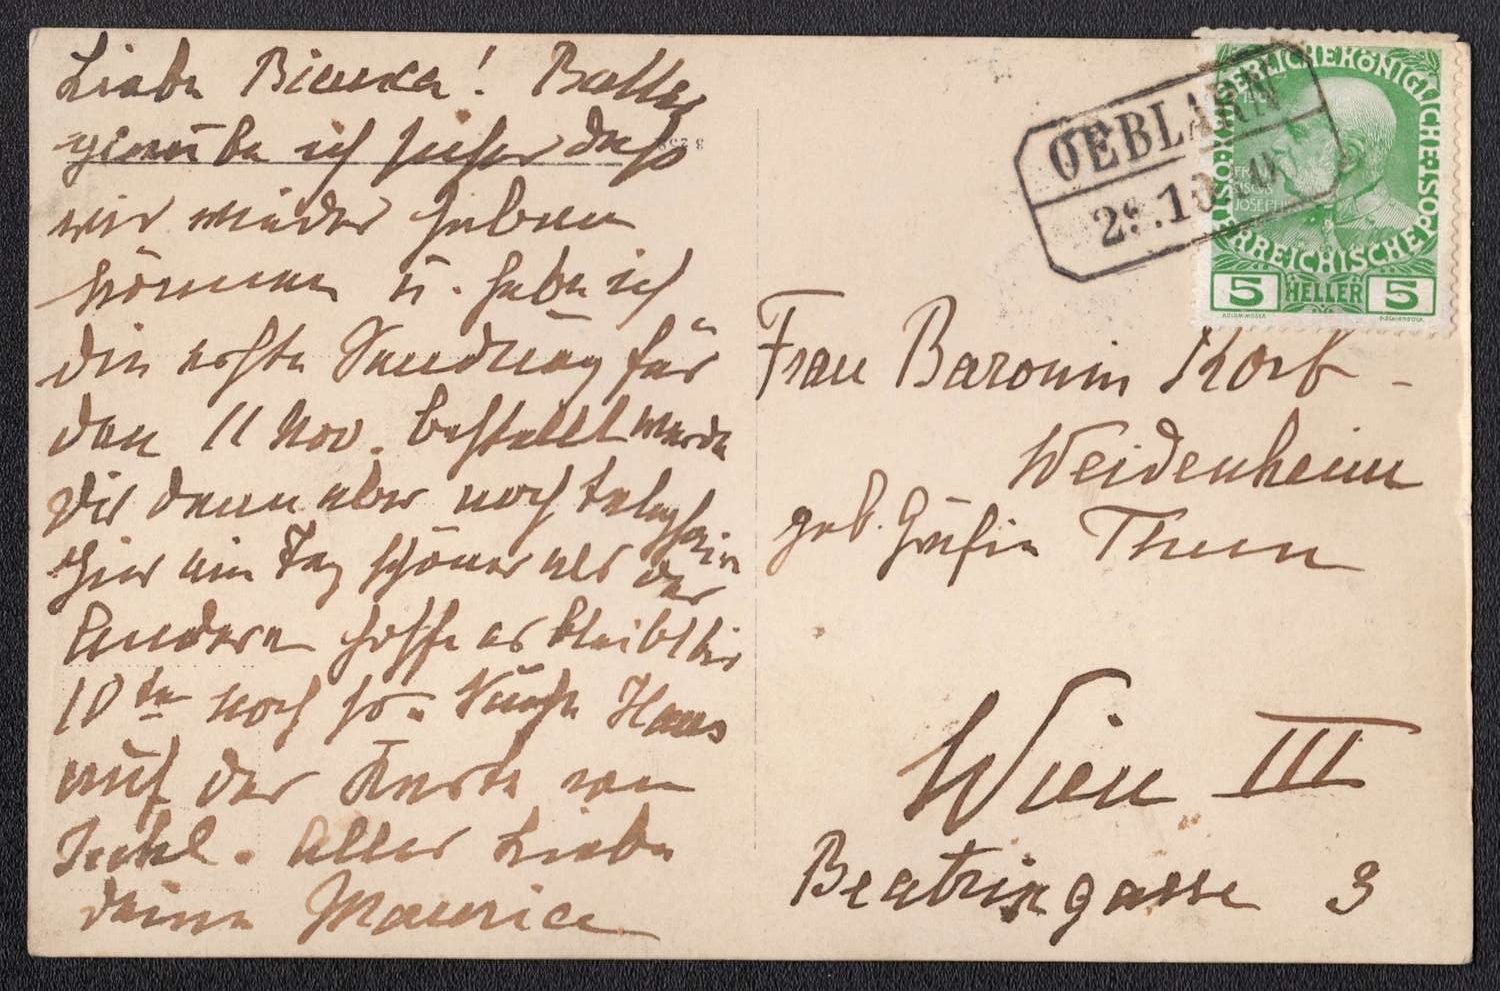 Liebe Bianca! Bette
glaube ich sicher daß
wir wieder haben
können u. habe ich
die erste Sendung für
den 11 Nov. bestellt werde
Dir dann aber noch
Hier ein Tag schöner als der
Andere hoffe es bleibt bis
10te noch so. Haus
auf der Karte von
Alles Liebe
deine Maurice
OEBLARN
29.10
KAISERLICHE KÖNIGLICHE
ÖSTERREICHISCHE POST
FRANZ
JOSEPH I
5 HELLER 5
Frau Baronin Korb -
Weidenheim
geb. Gräfin Thun
Wien III
Beatrixgasse 3